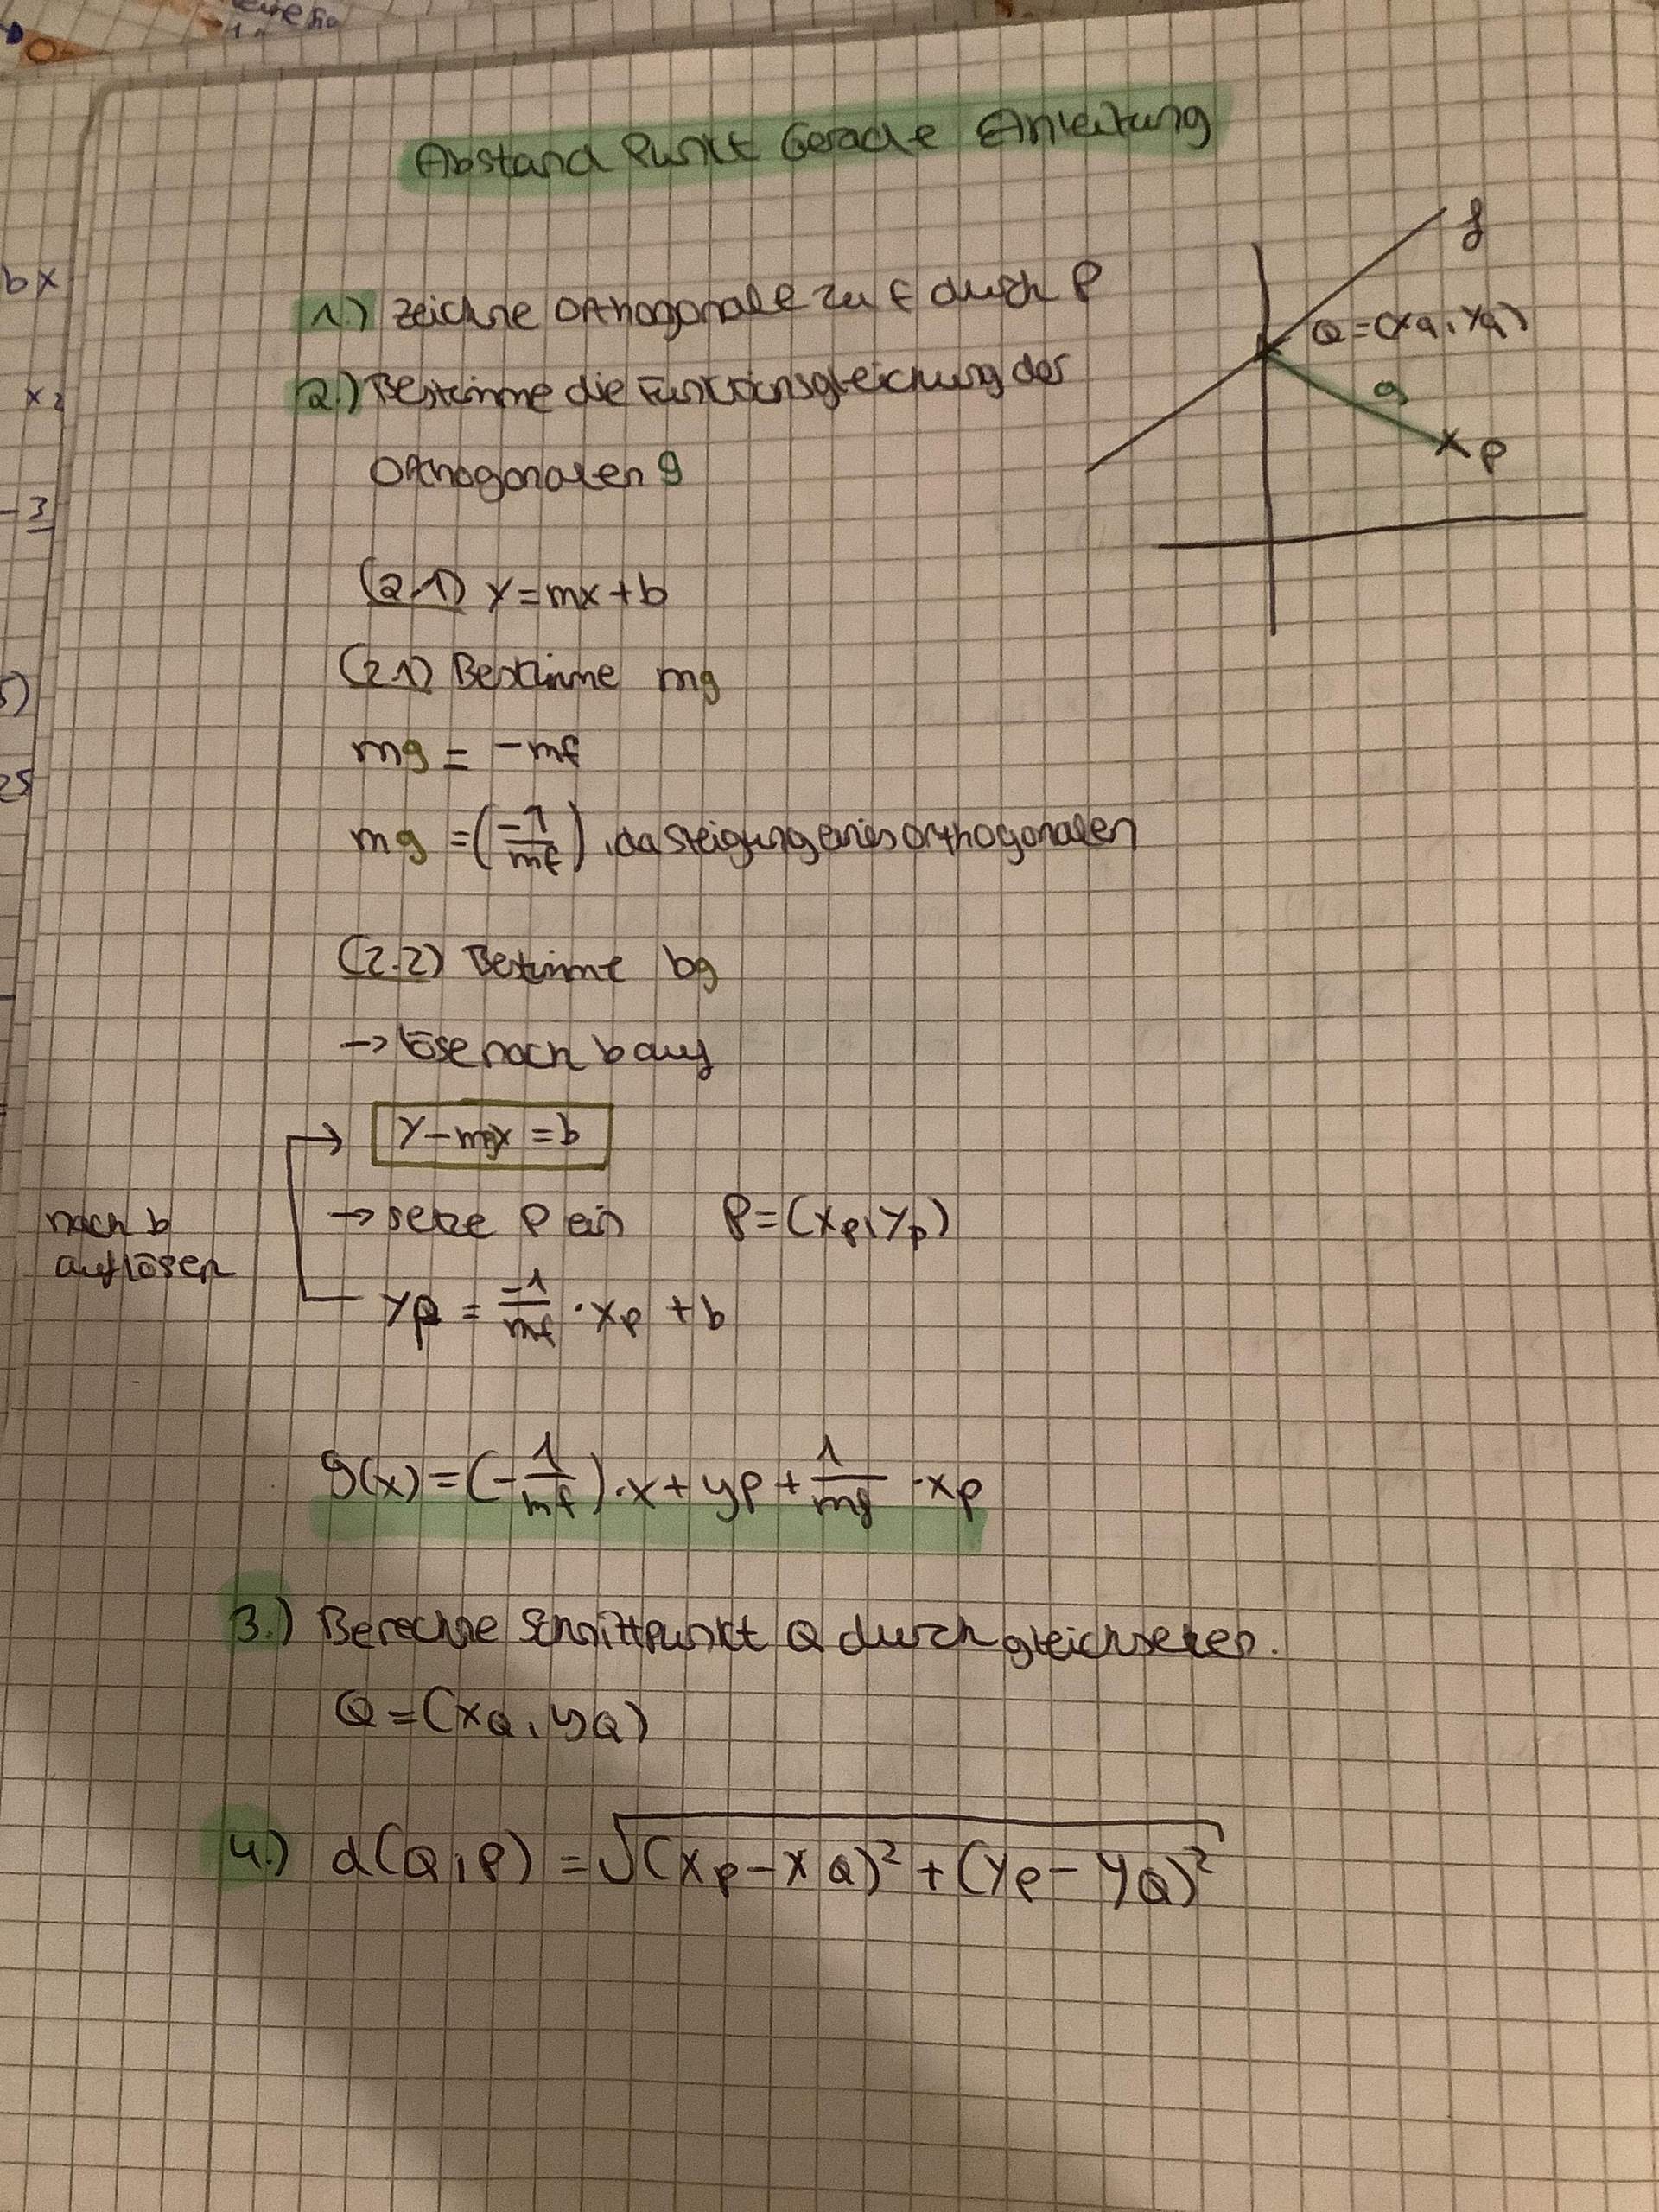 Abstand Punkt Gerade Anleitung
1.) Zeichne Orthogonale zu f durch P
2.) Bestimme die Funktionsgleichung der
Orthogonalen g
f
Q=(xQ, yQ)
g
P
(2.1) y=mx+b
(2.1) Bestimme mg
mg = -mf
mg = (-1/mf), da Steigung eines orthogonalen
(2.2) Bestimme bg
→ löse nach b auf
y-mgx=b
→ setze P ein P=(xp, yp)
nach b
auflösen
yp = -1/mf · xp + b
g(x)=(-1/mf)·x+yp+1/mf ·xp
3.) Berechne Schnittpunkt Q durch gleichsetzen.
Q=(xQ, yQ)
4.) d(Q,P) = √(xp-xQ)²+(yp-yQ)²
bx
x2
-3
5)
25